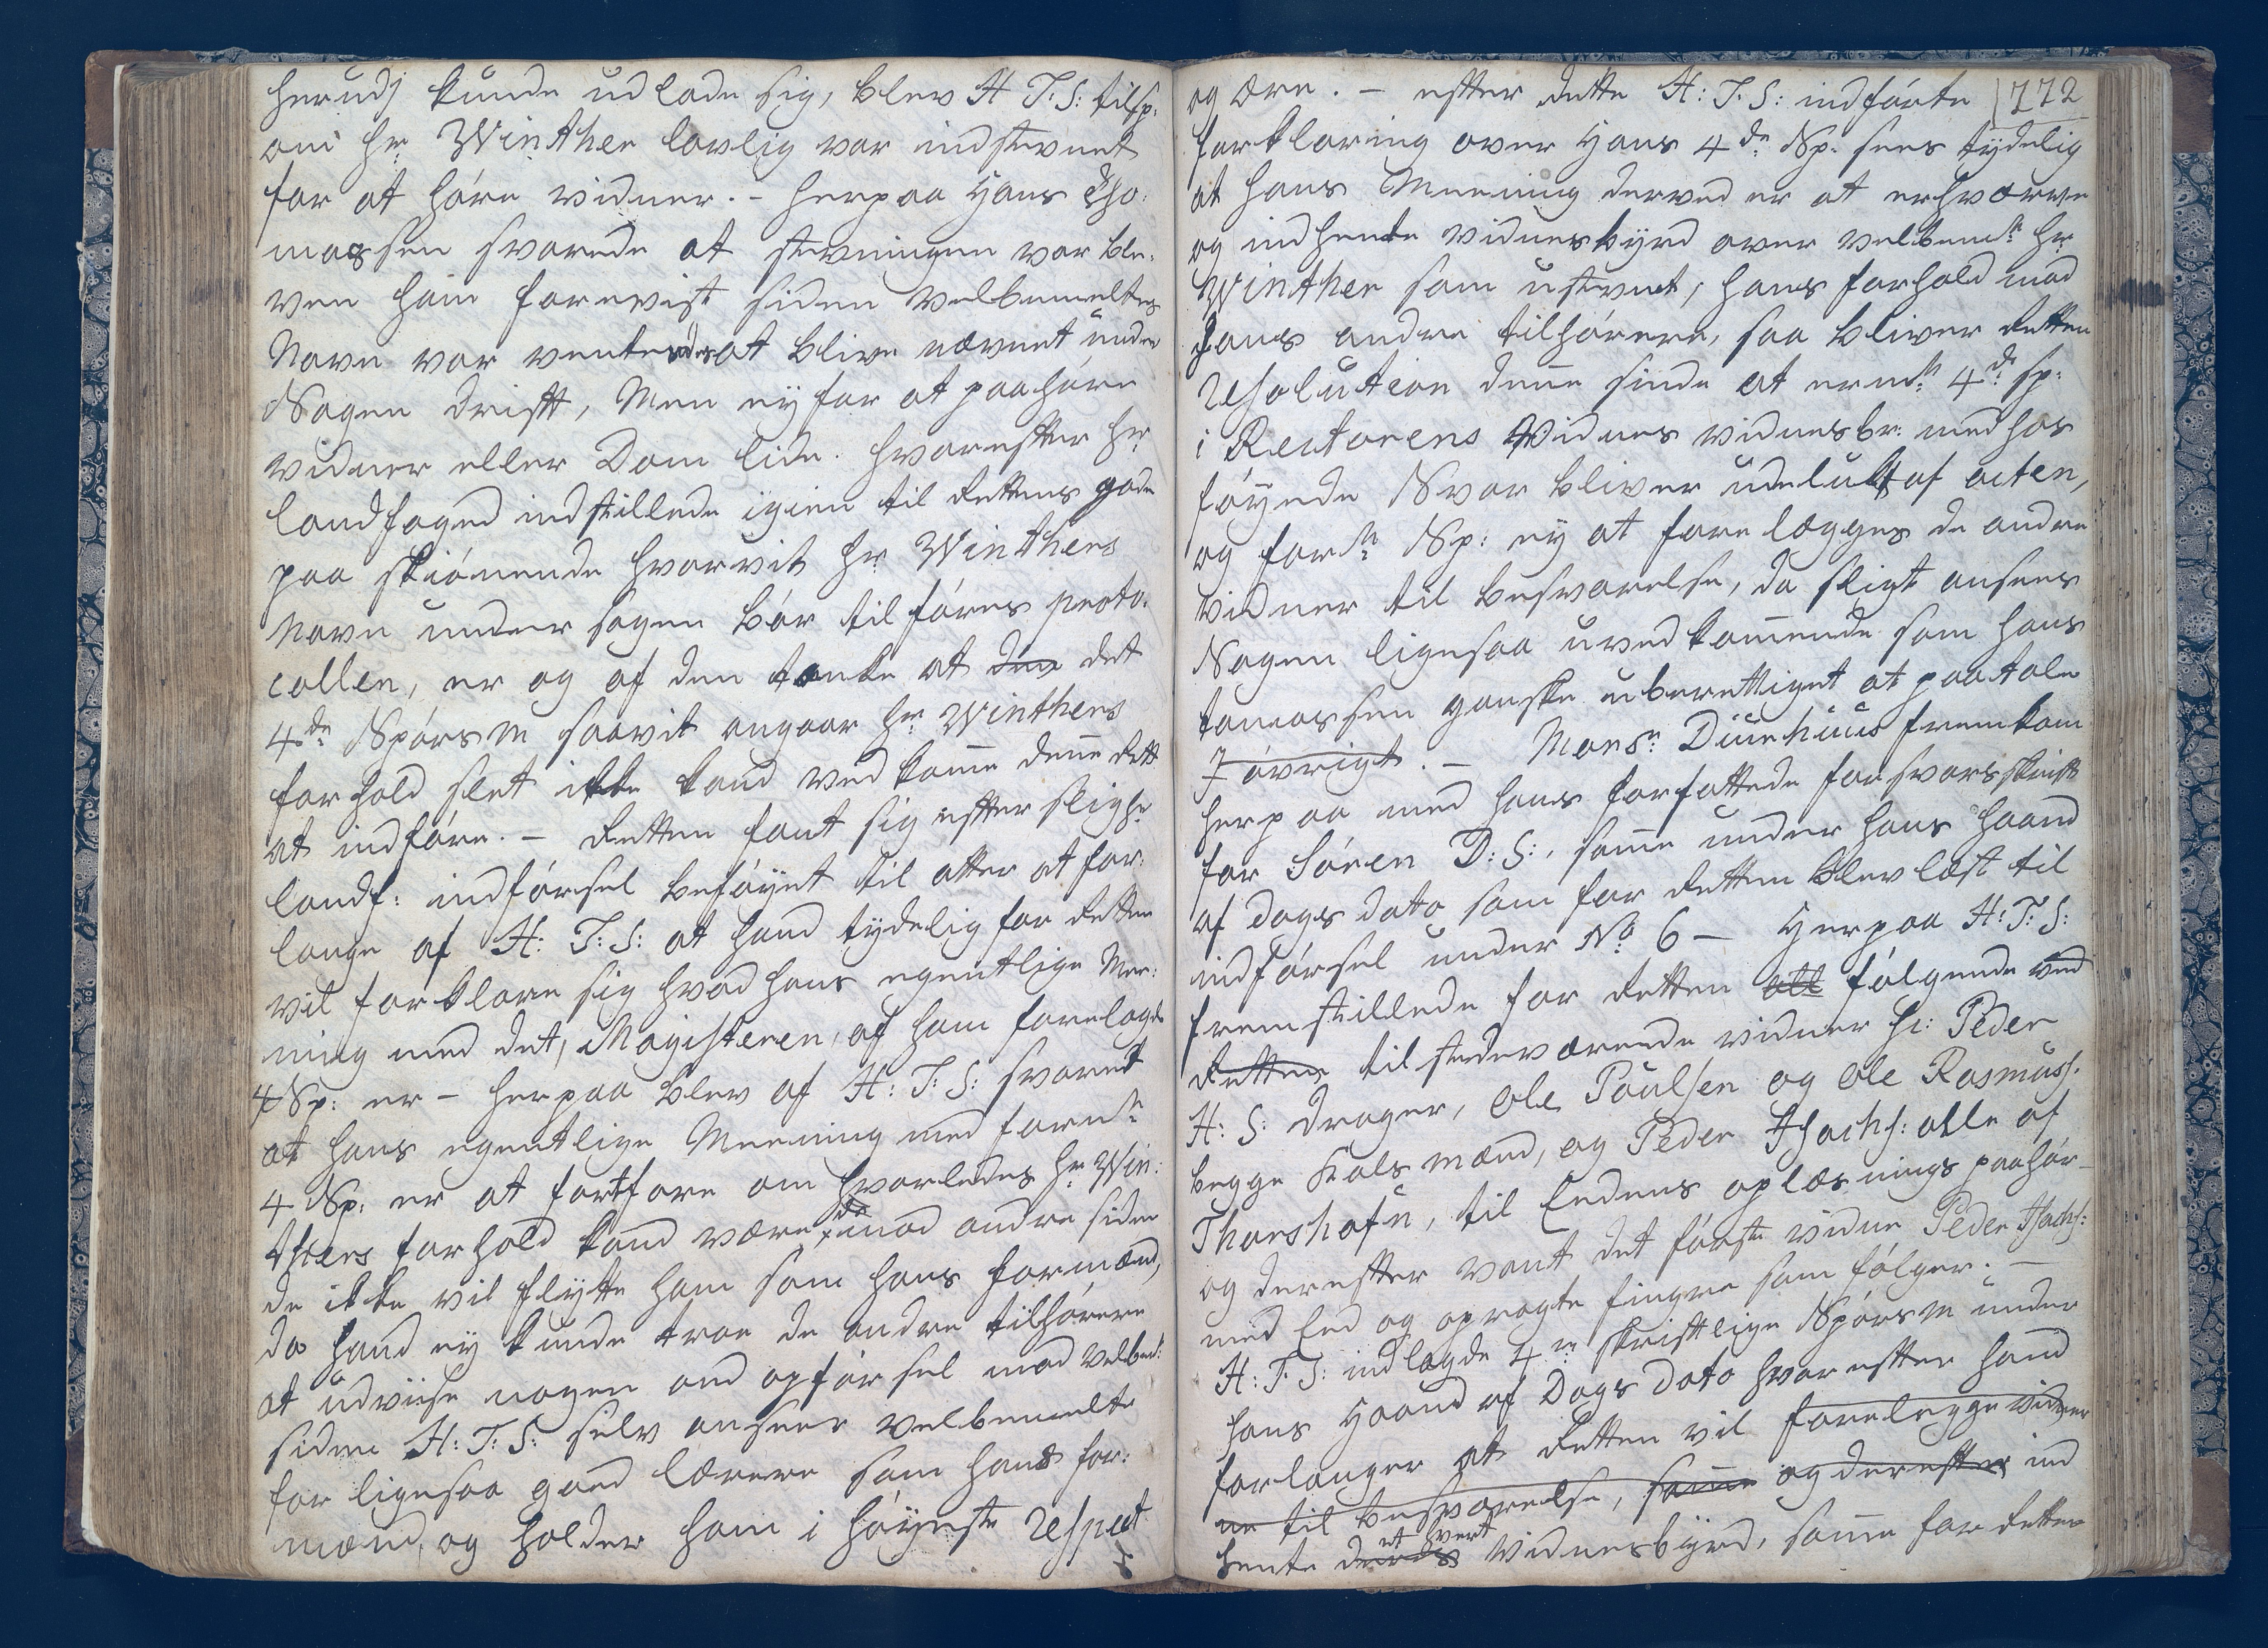 herudj kunde udlade sig, blev H T. S: tilsp:
om hr. Winther lovlig var indstevnet
for at høre vidner. - herpaa Hans Tho-
massen svarede at stevningen var ble-
ven ham forevist siden velbemeltes
Navn var ventendes at blive nævnet under
Sagen drift, Men ey for at paahøre
vidner eller Dom lide. hvorefter hr.
landfoged indstillede igien til Rettens gode
paa skiønende hvorvit hr. Winthers
Navn under sagen bør tilføres proto-
collen, er og af den tanke at den det
4de Spørsm saavit angaar hr. Winthers
forhold slet ikke kand vedkome dene Rett
at indføre. - Retten fant sig efter
landf: indførsel beføyet til atter at for-
lange af H: T: S: at hand tydelig for Retten
vil forklare sig hvad hans egentlige Mee-
ning med det, Magisteren, af ham forelagde
4 Sp: er - herpaa blev af H: T: S: svaret
at hans egentlige Meening med forn.
4 Sp: er at fortfare om hvorledes hr. Win-
thers forhold kand være, da imod andre siden
de ikke vil flytte ham som hans formænd,
da hand ey kunde troe de andre tilhørere
at udviise nogen ond opførsel mod velbem:
siden H: T: S: selv anseer velbemelte
for ligesaa goed lærere som hans for-
mænd, og holder ham i høyeste respect
og ære. - efter dette H: T: S: indførte 172
forklaring over Hans 4de Sp: sees tydelig
at hans Meening derved er at erhværve
og indhente vidnesbyrd over velbem. hr.
Winther som ustevnet, hans forhold mod
hans andre tilhørere, saa bliver Rettens
resolution dene sinde at erm. 4de sp:
i Rectorens Vidnes vidnesbr: med hos
føyede Svar bliver udelukt af acten,
og for. Sp: ey at forelægges de andre
vidner til besvarelse, da sligt ansees
Sagen ligesaa uvedkomende som Hans
tomassen ganske uberettiget at paatale
I øvrigt. - Mons. Diurhuus fremkom
herpaa med hans forfattede forsvarsskrift
for Søren D: S:, same under hans Haand
af Dags dato som for Retten blev læst til
indførsel under No 6 - Herpaa H: T: S:
fremstillede for Retten att følgende ved
Retten tilstedeværende vidner hr: Peder
H: S: Drager, Ole Poulsen og Ole Rasmuss.
begge Kals mænd, og Peder Isachs: alle af
Thorshafn, til Eedens oplæsnings paahør-
og derefter vant det første vidne Peder Isachs:
med Eed og opragte fingre som følger. -
H: T: S: indlagde 4re skriftlige Spørsm under
hans Haand af Dags dato hvorefter hand
forlanger at Retten vil forelegge vidner
ne til besvarelse, same og derefter ind
hente deres et hvert Vidnesbyrd, same for Retten